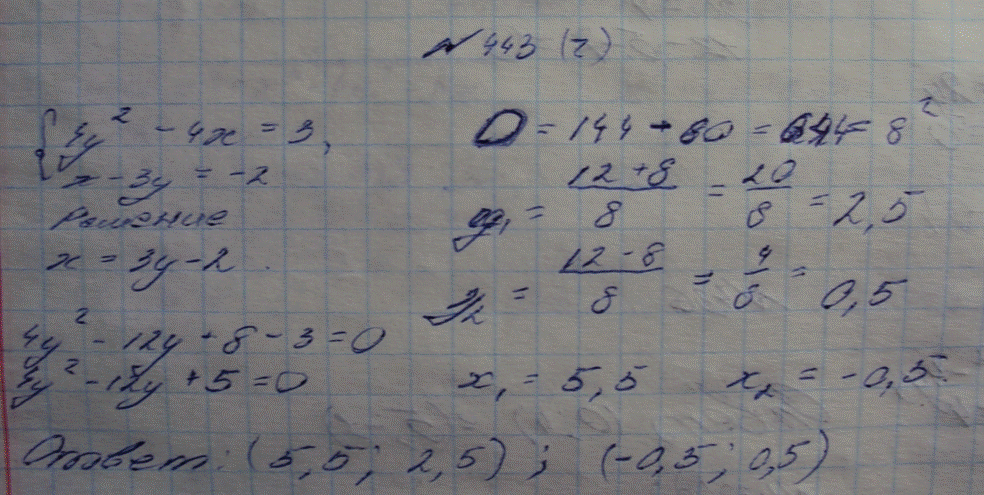 № 443 (г)
{ 4y² - 4x = 3,
x - 3y = -2
Решение
x = 3y - 2.
4y² - 12y + 8 - 3 = 0
4y² - 12y + 5 = 0
D = 144 - 80 = 64 = 8²
y₁ = (12 + 8)/8 = 20/8 = 2,5
y₂ = (12 - 8)/8 = 4/8 = 0,5
x₁ = 5,5 x₂ = -0,5.
Ответ: (5,5; 2,5); (-0,5; 0,5)